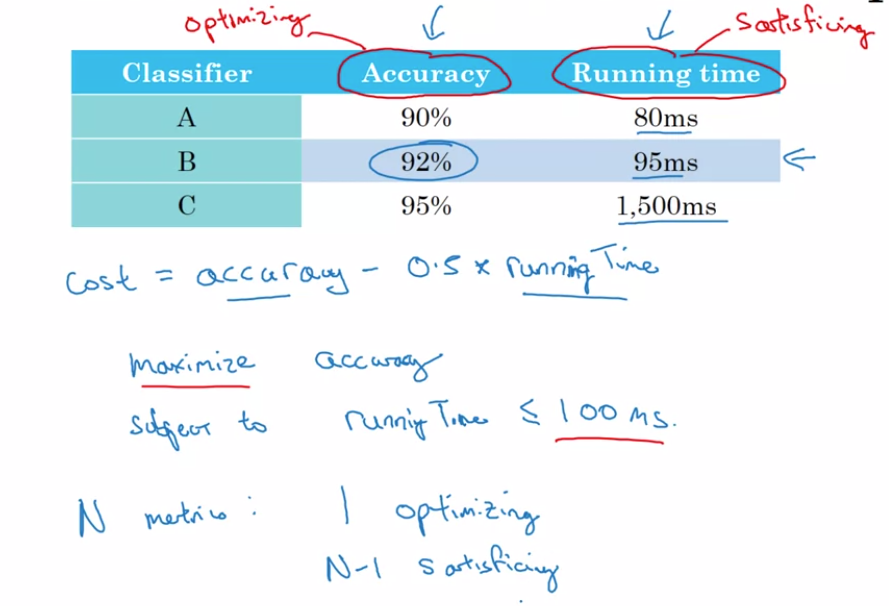 optimizing
Satisficing
Classifier Accuracy Running time
A 90% 80ms
B 92% 95ms
C 95% 1,500ms
cost = accuracy - 0.5 x runningTime
maximize accuracy
subject to runningTime ≤ 100 ms.
N metrics: 1 optimizing
N-1 satisficing